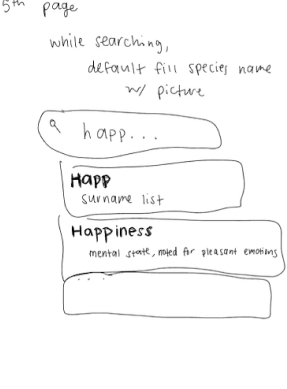 5th page
while searching,
default fill species name
w/ picture
happ...
Happ
surname list
Happiness
mental state, noted for pleasant emotions
...